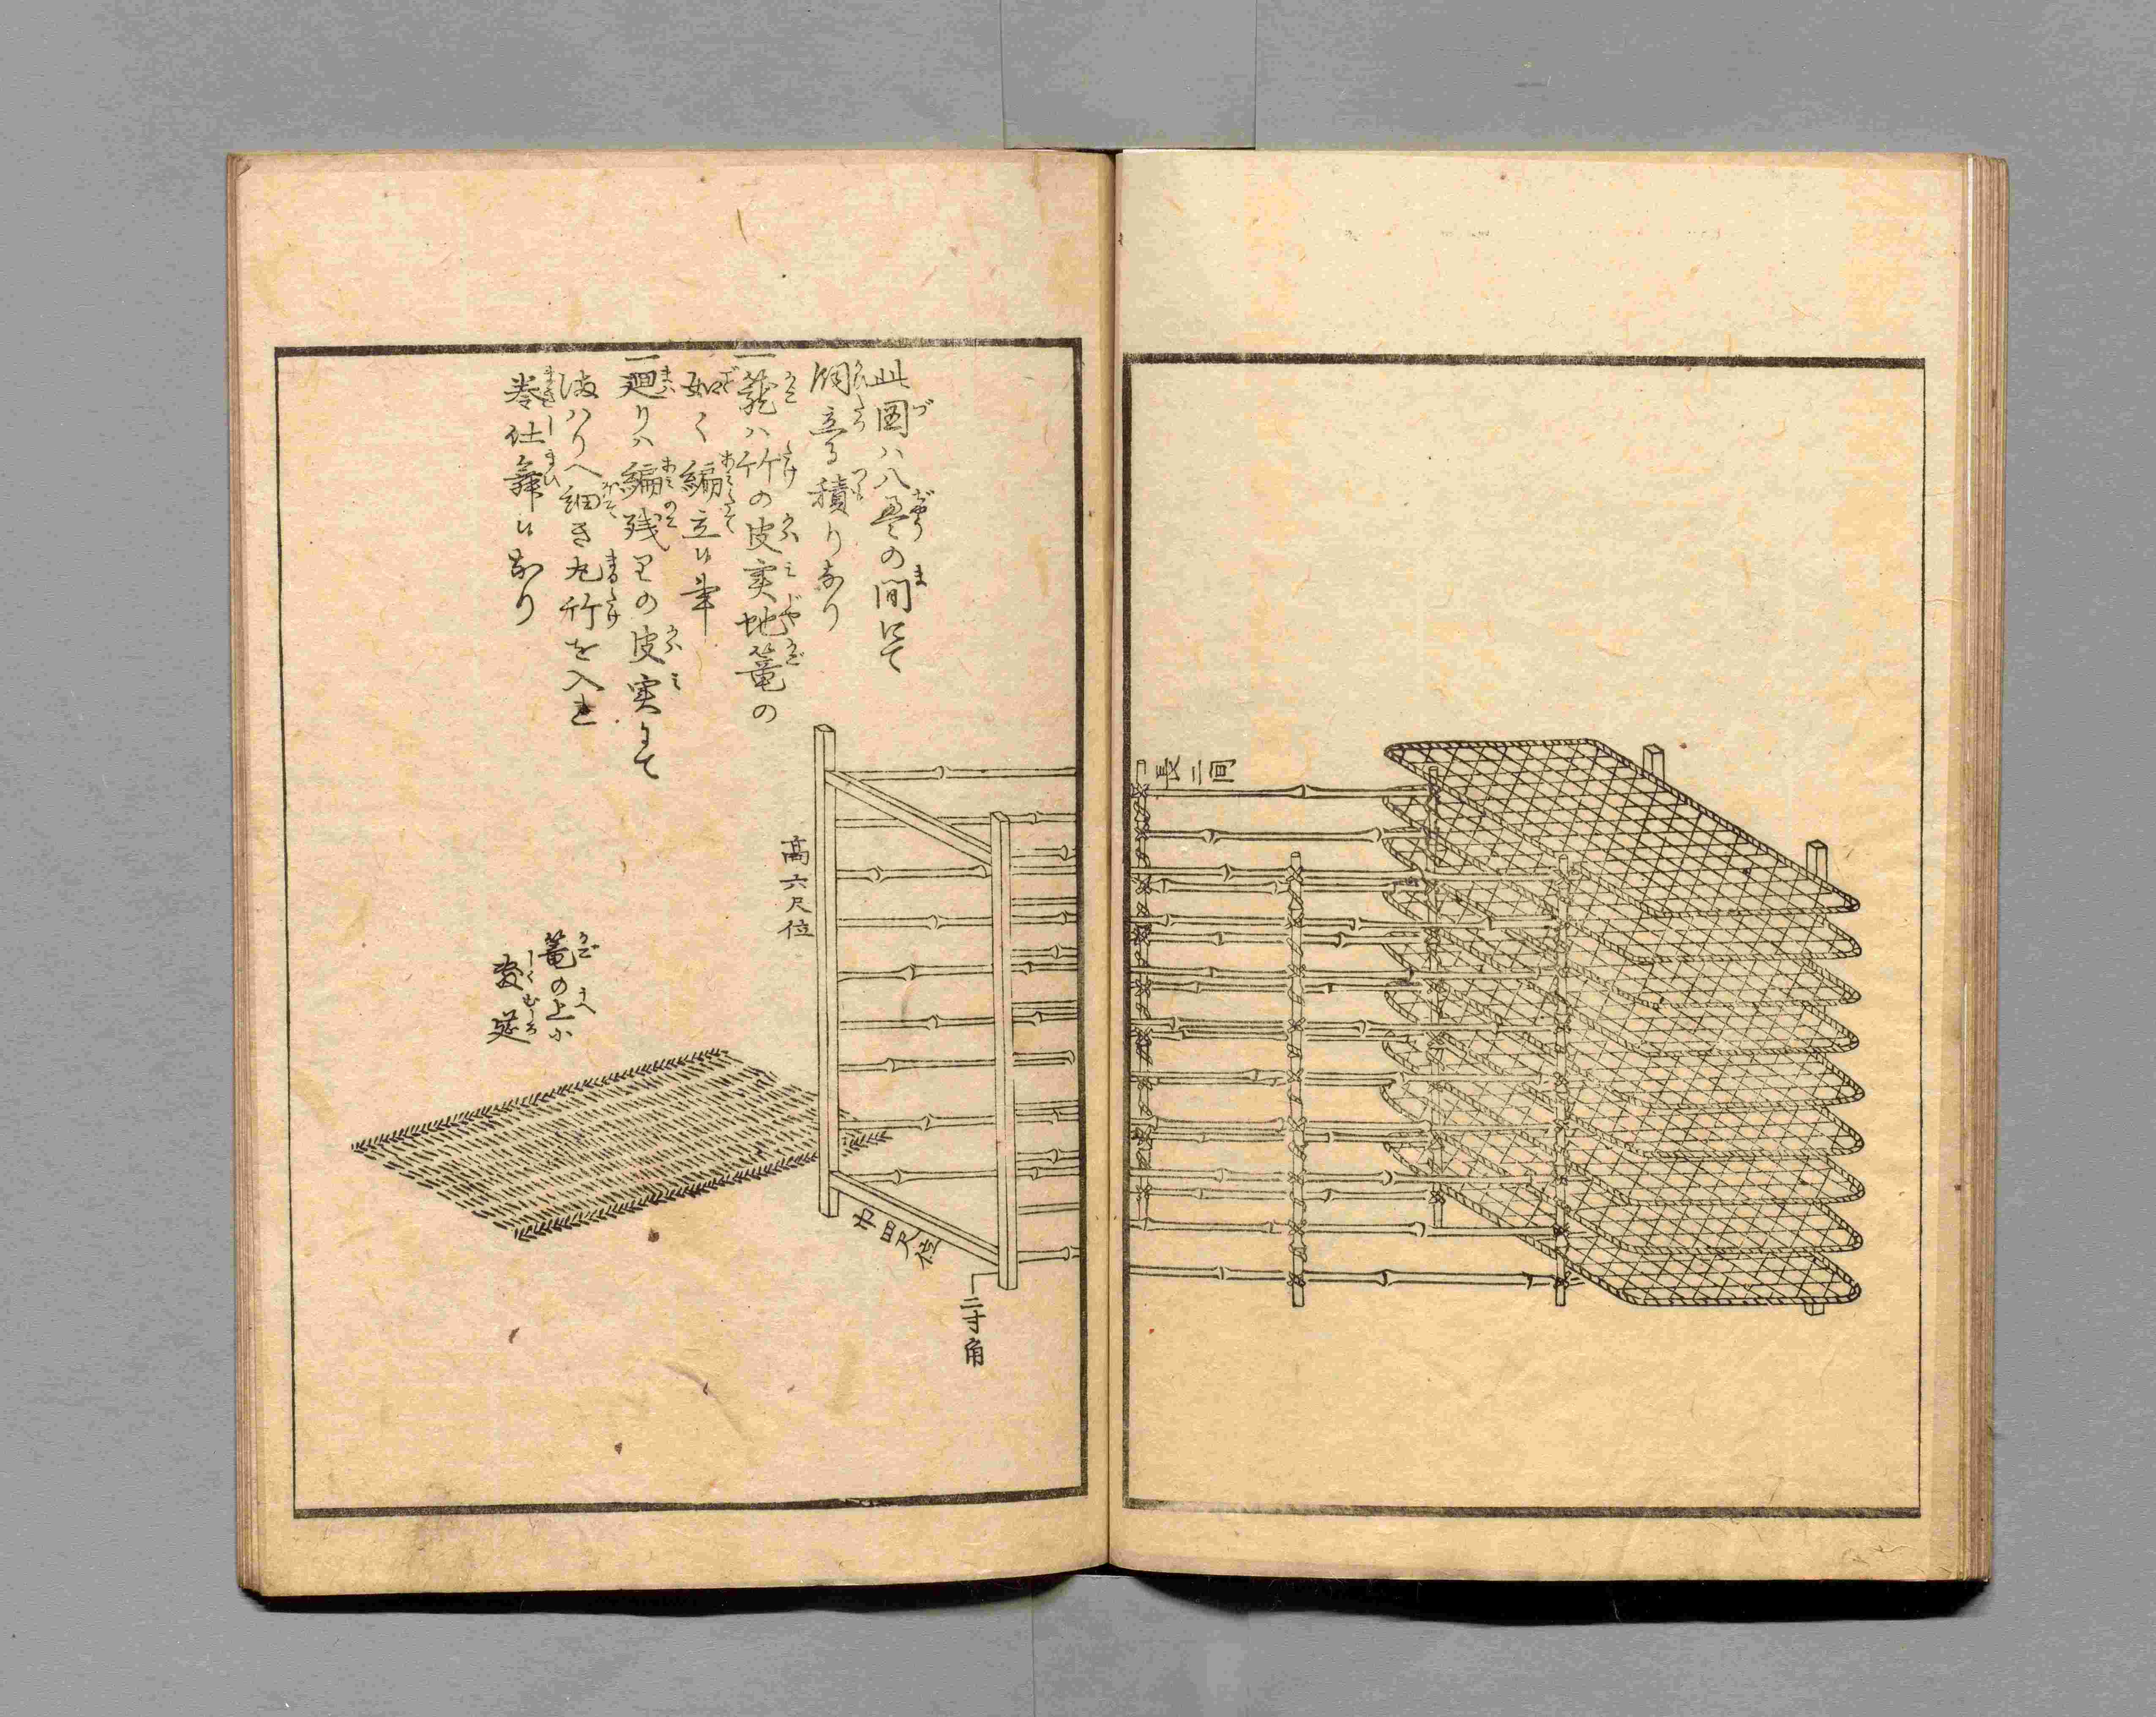 長二間
此圖ハ八畳の間にて
飼立る積りなり
一籠ハ竹の皮実地篭の
如く編立候事
一廻りハ編残りの皮実にて
ハりへ細き丸竹を入れ
巻仕舞候なり
高六尺位
巾四尺位
二寸角
篭の上に
敷莚